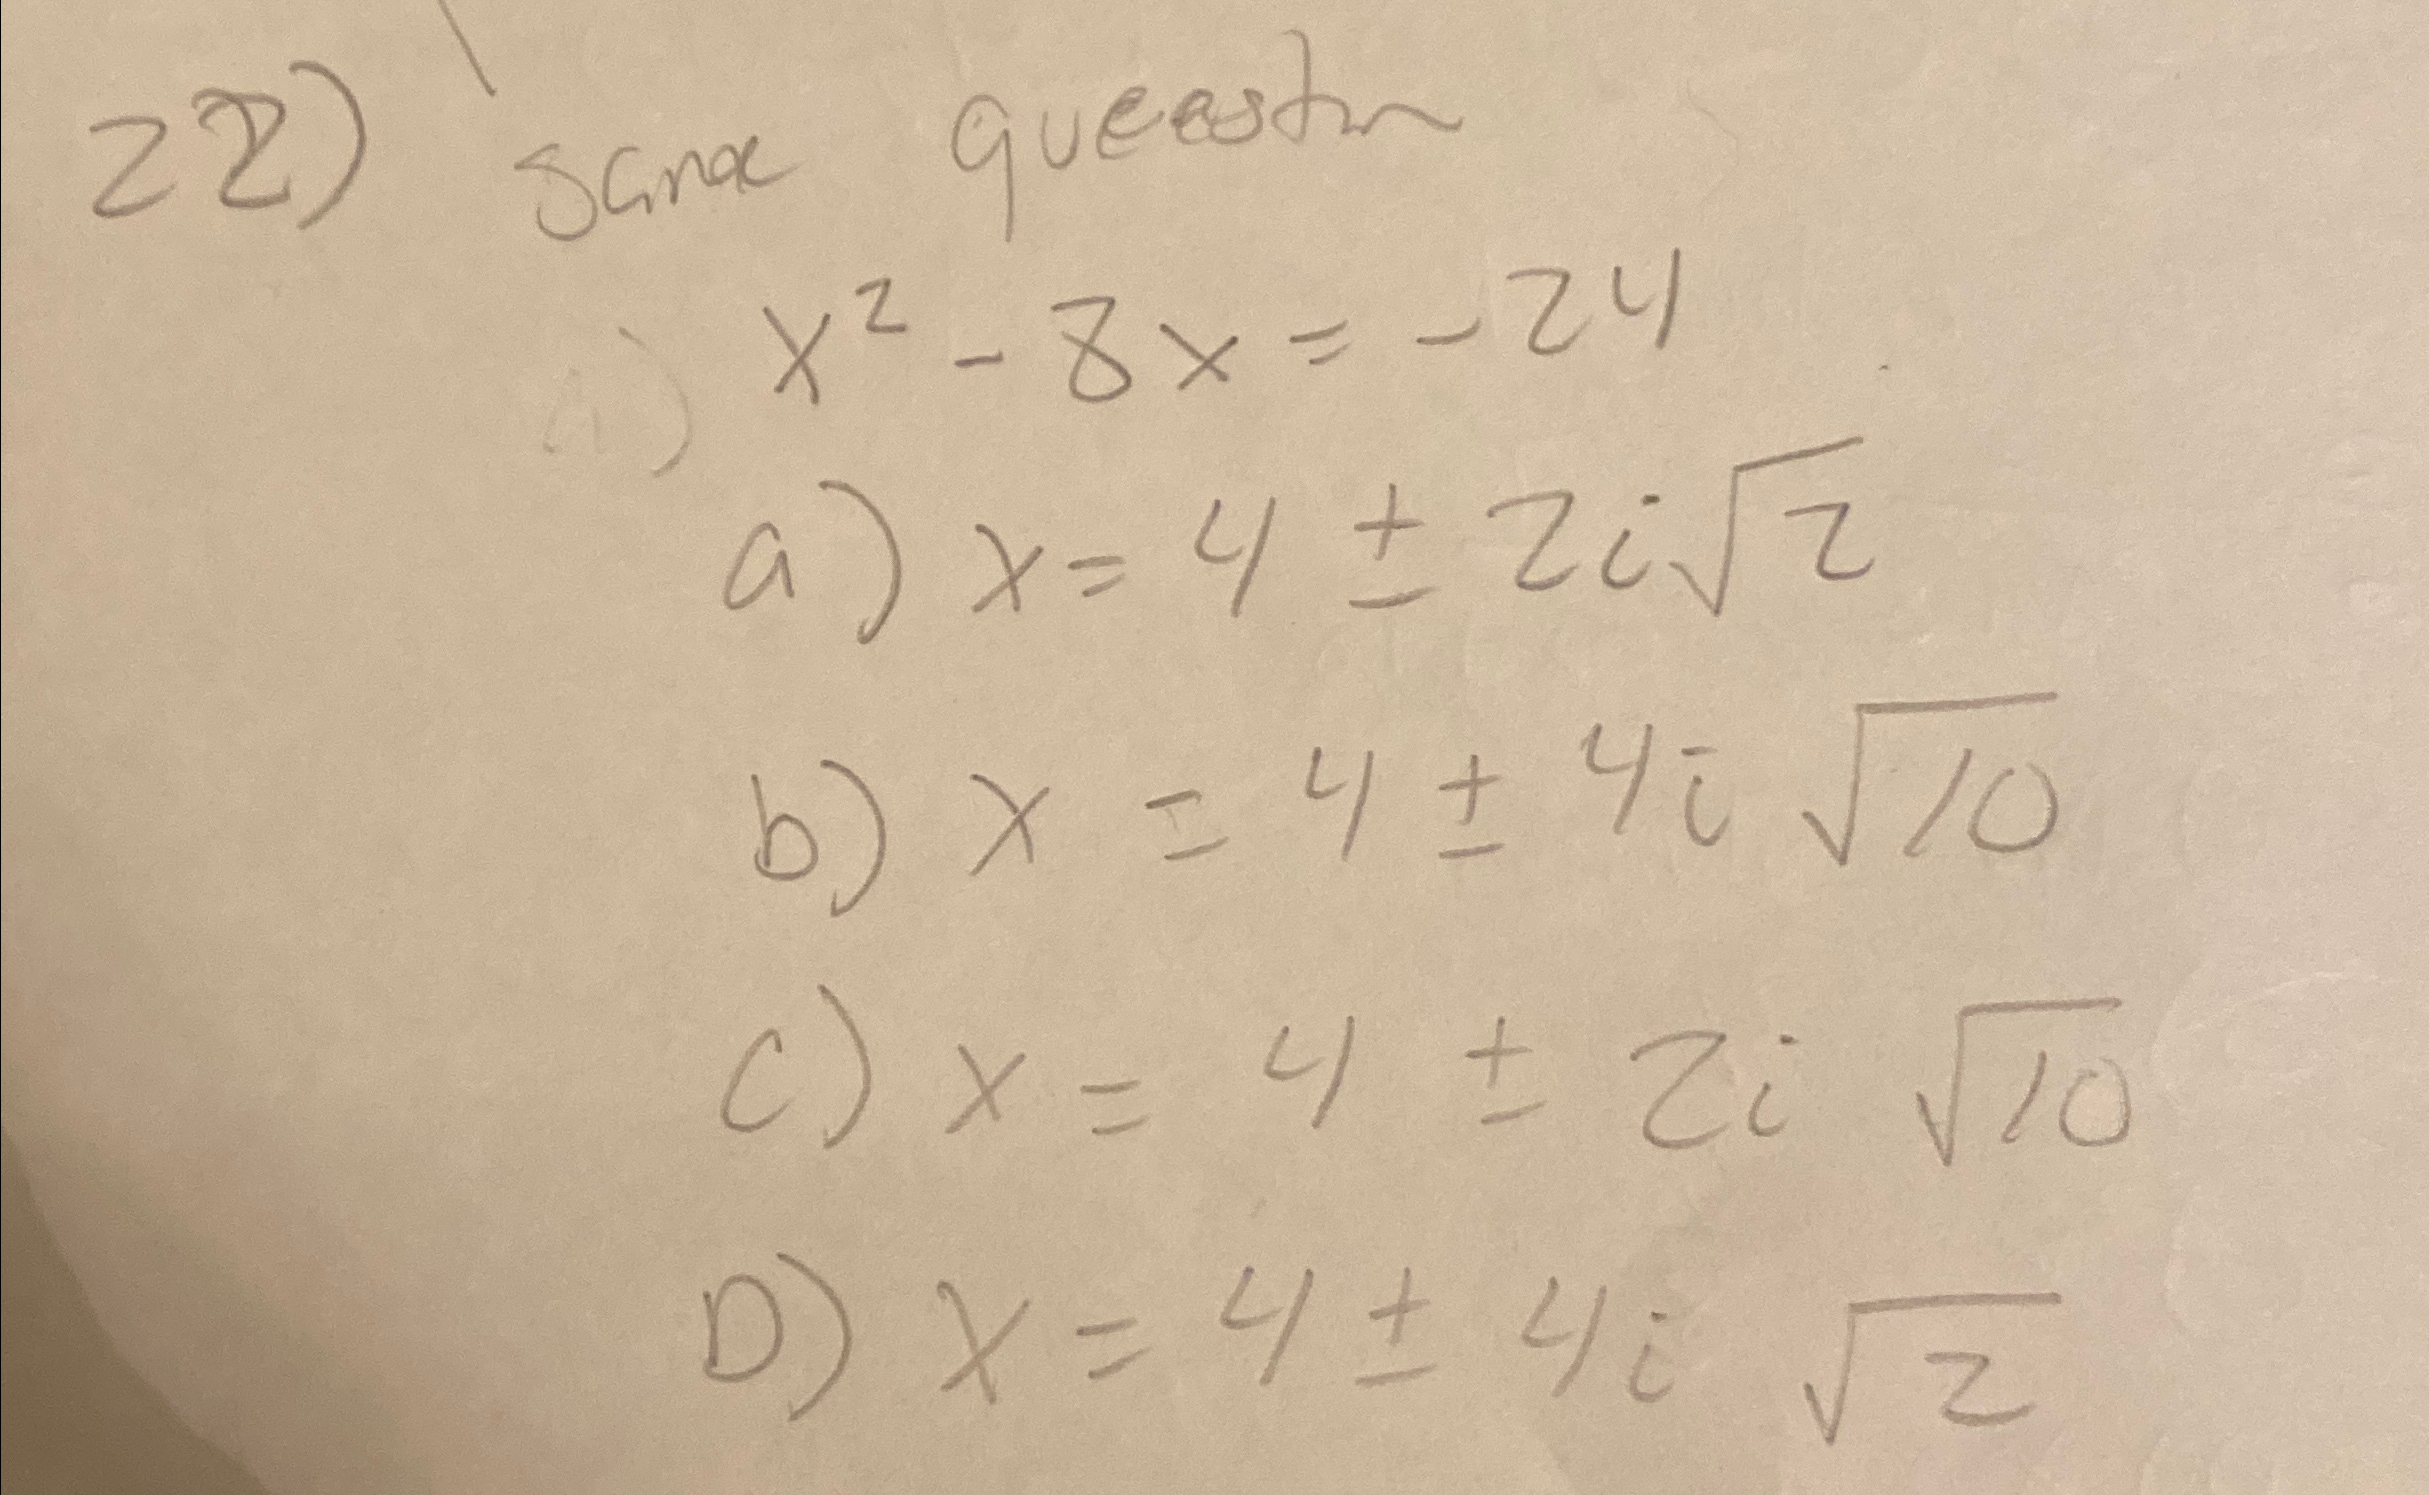 22) same queastn
x² - 8x = -24
a) x = 4 ± 2i√2
b) x = 4 ± 4i √10
c) x = 4 ± 2i √10
D) x = 4 ± 4i √2